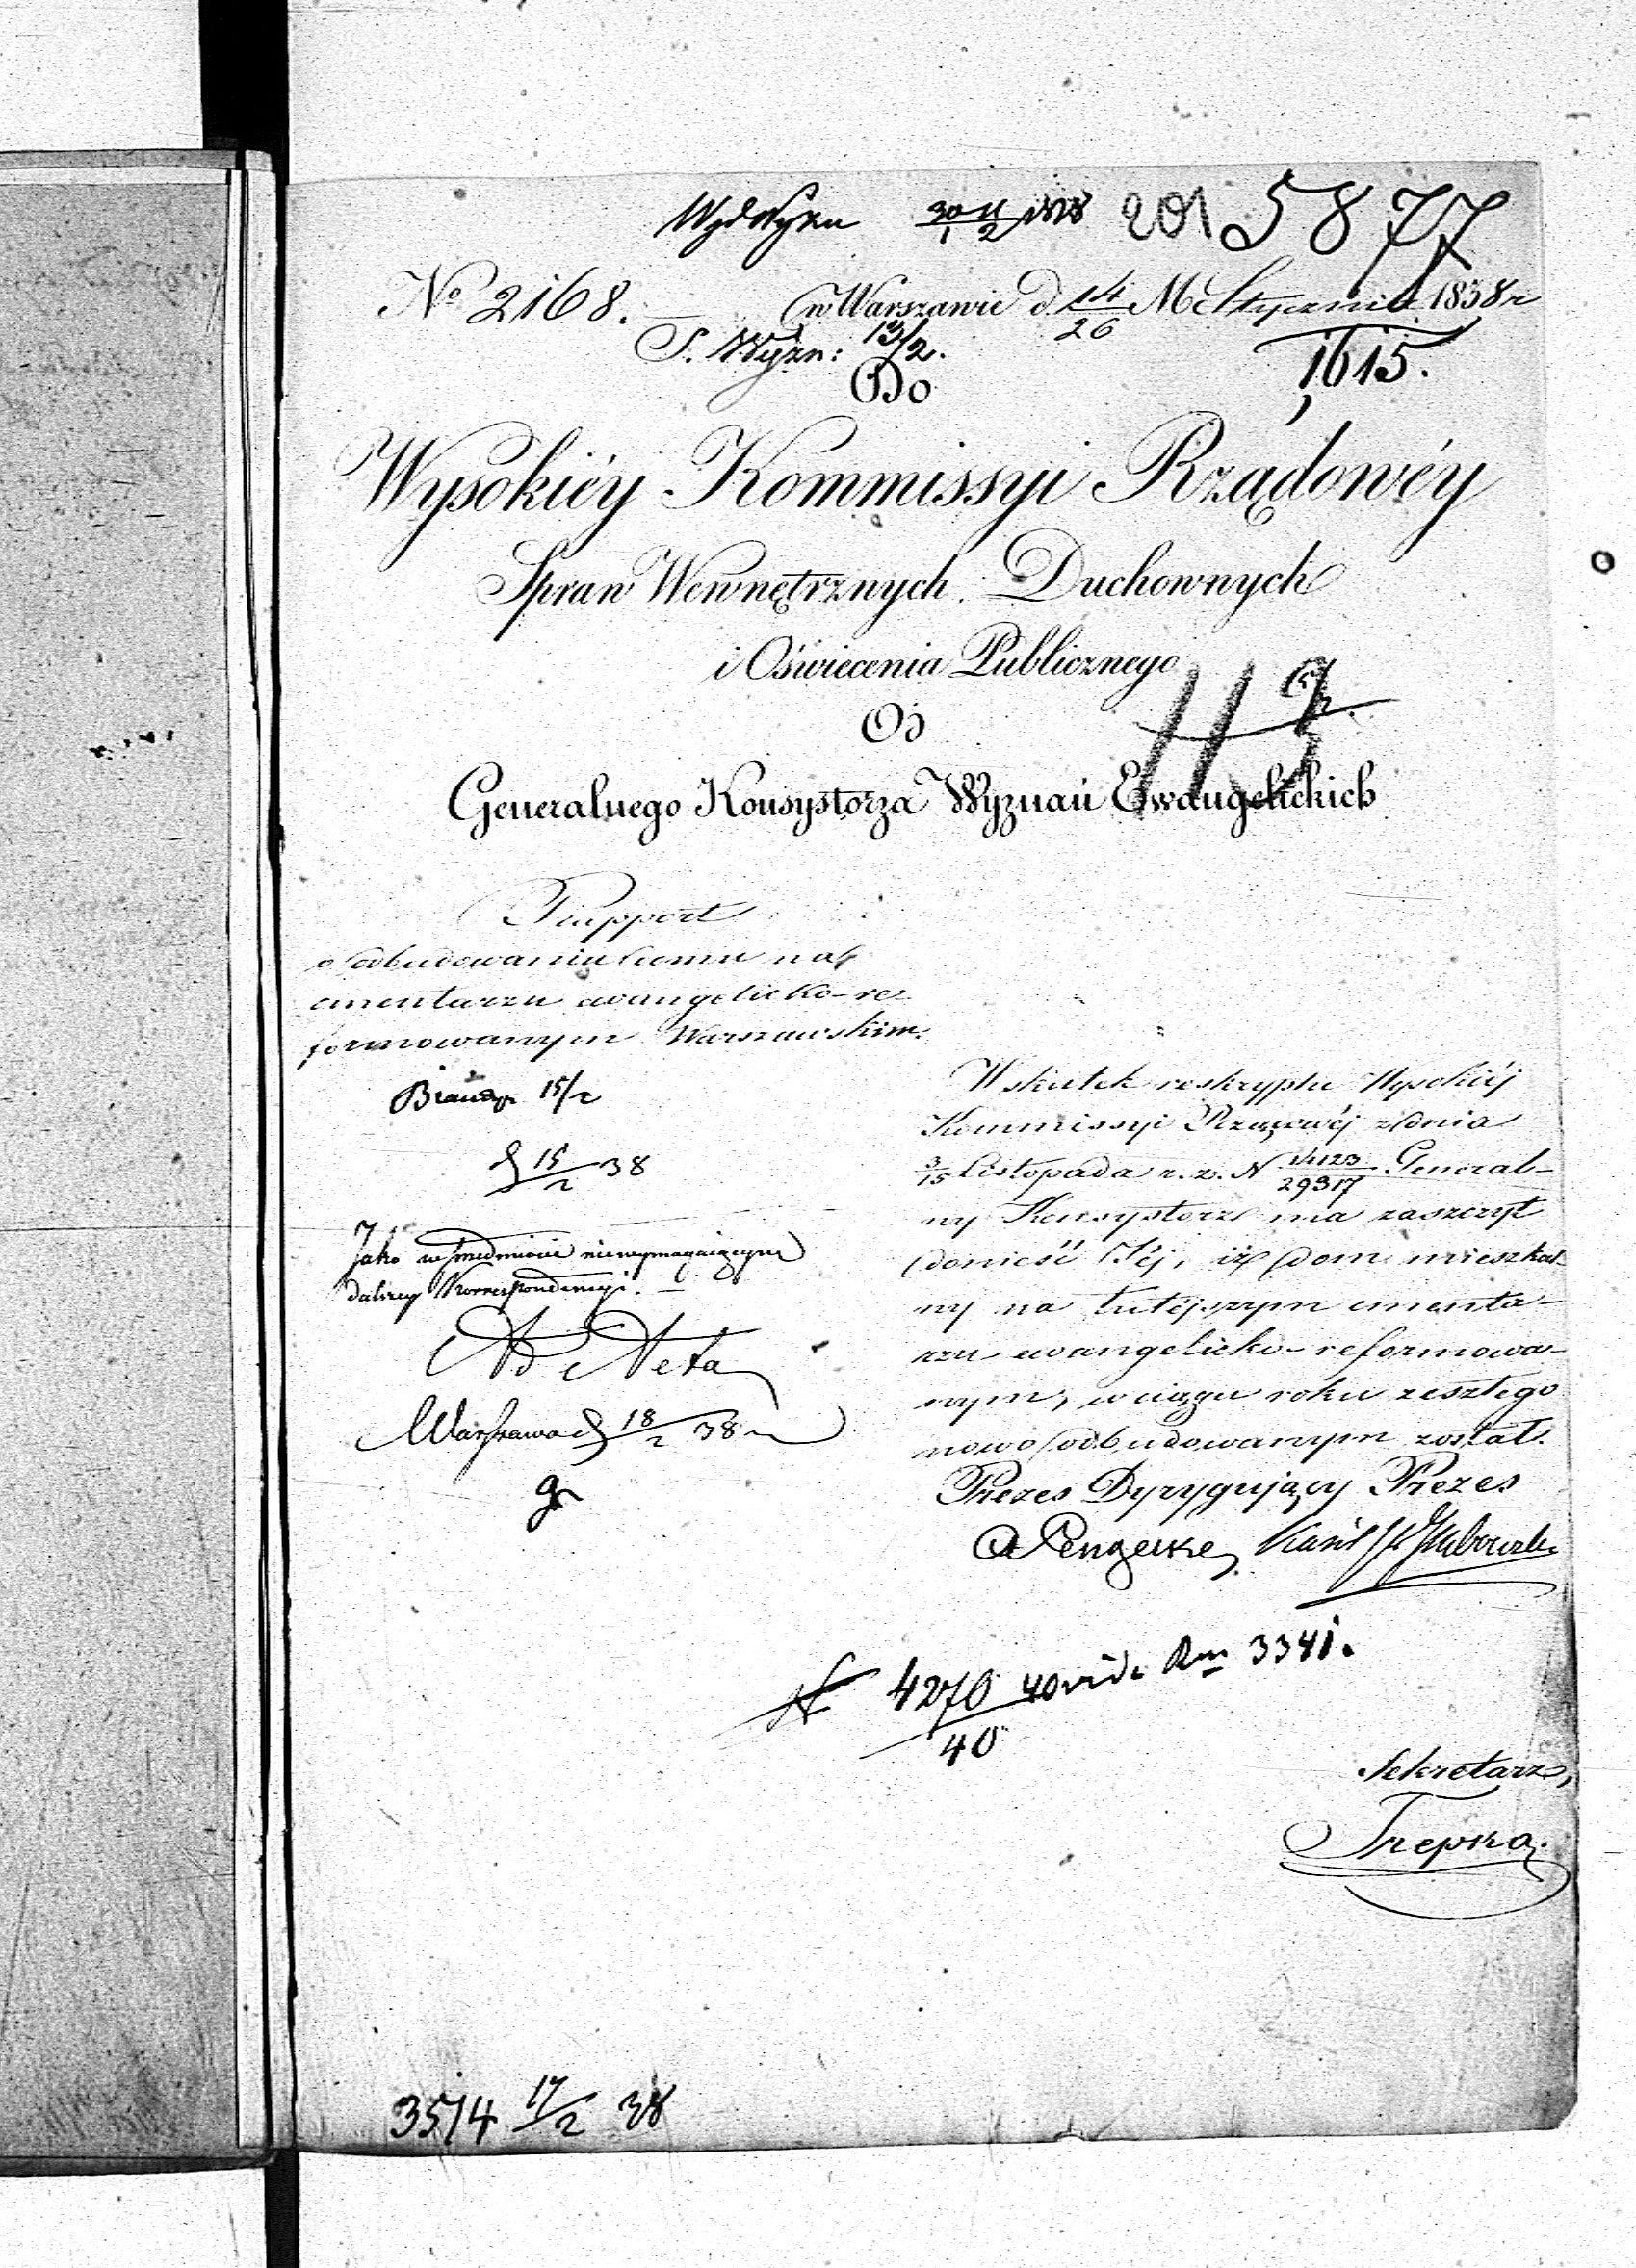 WydWyzn 30/1 11/2 1838 201 5877
No 2168. w Warszawie d. 14/26 M. Stycznia 1838 r
S. Wyzn: 13/2. 1615.
Do
Wysokiéy Kommissyi Rządowéy
Spraw Wewnętrznych Duchownych
i Oświecenia Publicznego
113
Od
Generalnego Konsystorza Wyznań Ewangelickich
Rapport
o odbudowaniu domu na
cmentarzu ewangelicko-re-
formowanym Warszawskim.
15/2
d 15/2 38
Jako w przedmiocie niewymagaiącym
dalszey Korrespondencyi. –
Ad Acta
Warszawa d 18/2 38
Wskutek reskryptu Wysokiéj
Kommissyi Rządowéj z dnia
3/15 Listopada r. z. N 14123/29317 General-
ny Konsystorz ma zaszczyt
donieść Jéj, iż dom mieszkal-
ny na tutéjszym cmenta-
rzu ewangelicko-reformowa-
nym, w ciągu roku zeszłego
nowo odbudowanym został.
Prezes Dyrygujący Prezes
N 4270/40 40 vide 3341.
Sekretarz,
Trepka.
3514 17/2 38